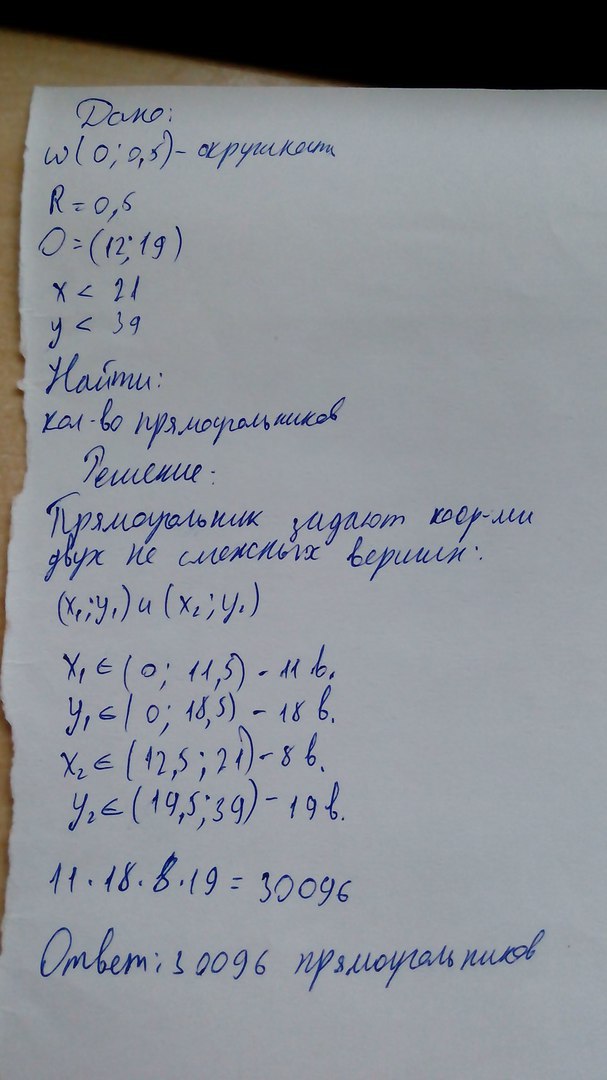 Дано:
ω(0; 0,5) - окружность
R = 0,5
O = (12; 19)
x < 21
y < 39
Найти:
кол-во прямоугольников
Решение:
Прямоугольник задают коор-ми
двух не смежных вершин:
(x₁; y₁) и (x₂; y₂)
x₁ ∈ (0; 11,5) - 11 в.
y₁ ∈ (0; 18,5) - 18 в.
x₂ ∈ (12,5; 21) - 8 в.
y₂ ∈ (19,5; 39) - 19 в.
11 · 18 · 8 · 19 = 30096
Ответ: 30096 прямоугольников